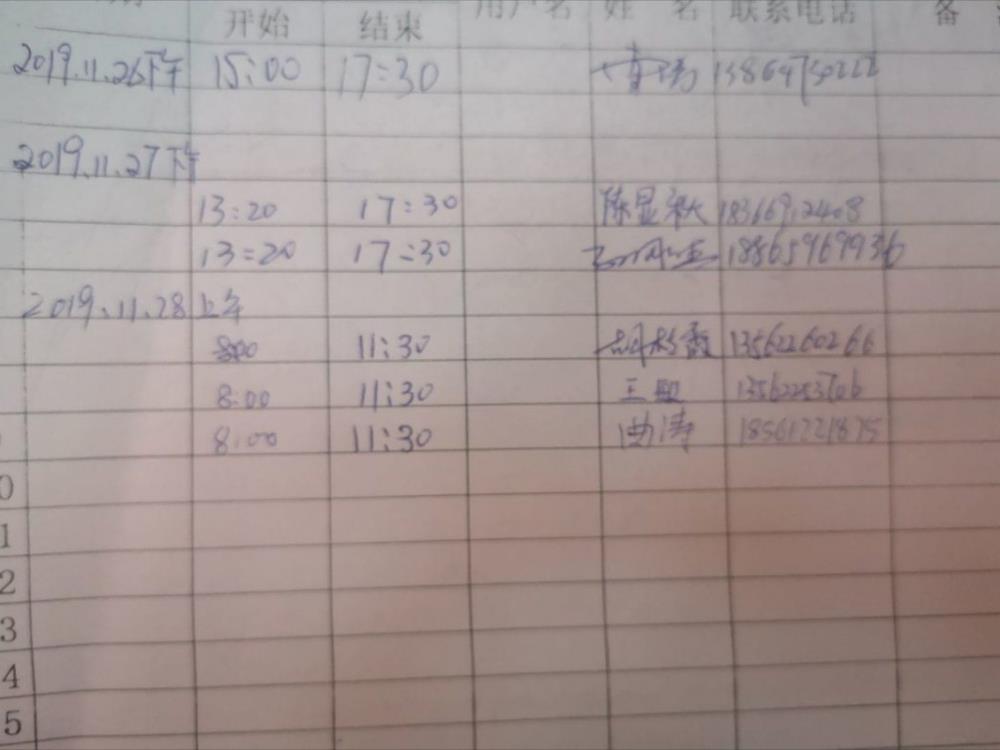 开始 结束 用户名 姓 名 联系电话 备
2019.11.26下午 15:00 17:30
2019.11.27下午
13:20 17:30 陈显秋 18366912408
13:20 17:30 18865969936
2019.11.28上午
8:00 11:30 13562260266
8:00 11:30
8:00 11:30 曲涛 18561221875
0
1
2
3
4
5